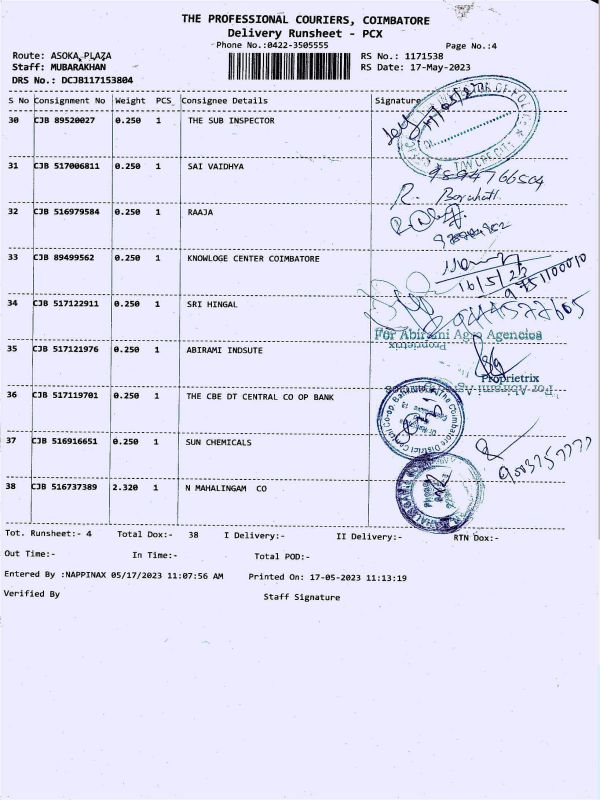 THE PROFESSIONAL COURIERS, COIMBATORE
Delivery Runsheet - PCX
Phone No.:0422-3505555
Page No.:4
Route: ASOKA PLAZA
RS No.: 1171538
Staff: MUBARAKHAN
RS Date: 17-May-2023
DRS No.: DCJB117153804
S No Consignment No Weight PCS Consignee Details Signature
30 CJB 89520027 0.250 1 THE SUB INSPECTOR
31 CJB 517006811 0.250 1 SAI VAIDHYA
9894766504
32 CJB 516979584 0.250 1 RAAJA
33 CJB 89499562 0.250 1 KNOWLOGE CENTER COIMBATORE
16/5/23
9751100010
34 CJB 517122911 0.250 1 SRI HINGAL
For Abirami Agro Agencies
Proprietrix
35 CJB 517121976 0.250 1 ABIRAMI INDSUTE
Proprietrix
For Abirami Agro Agencies
36 CJB 517119701 0.250 1 THE CBE DT CENTRAL CO OP BANK
37 CJB 516916651 0.250 1 SUN CHEMICALS
38 CJB 516737389 2.320 1 N MAHALINGAM CO
Tot. Runsheet:- 4 Total Dox:- 38 I Delivery:- II Delivery:- RTN Dox:-
Out Time:- In Time:- Total POD:-
Entered By :NAPPINAX 05/17/2023 11:07:56 AM Printed On: 17-05-2023 11:13:19
Verified By Staff Signature